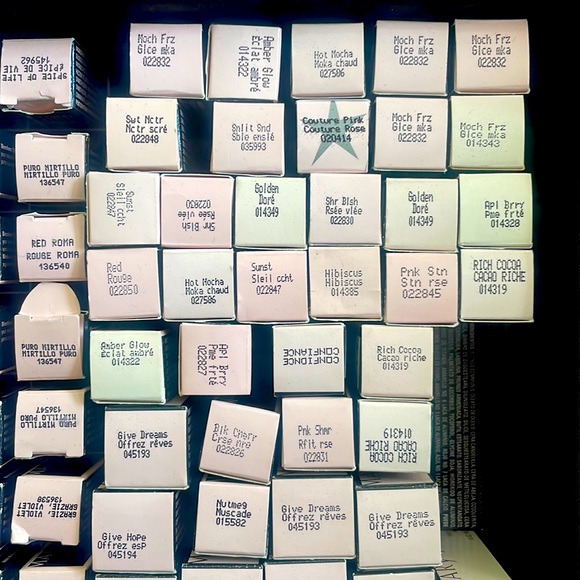 SPICE OF LIFE
EPICE DE VIE
145962
Moch Frz
Glce mka
022832
Amber Glow
Éclat ambré
014322
Hot Mocha
Moka chaud
027586
Moch Frz
Glce mka
022832
Moch Frz
Glce mka
022832
Swt Nctr
Nctr scré
022848
Snlit Snd
Sble enslé
035993
Couture Pink
Couture Rose
020414
Moch Frz
Glce mka
022832
Moch Frz
Glce mka
014343
PURO MIRTILLO
MIRTILLO PURO
136547
Sunst
Sleil ccht
022847
Shr Blsh
Rsée vlée
022830
Golden
Doré
014349
Shr Blsh
Rsée vlée
022830
Golden
Doré
014349
Apl Brry
Pme frté
014328
RED ROMA
ROUGE ROMA
136540
Red
Rouge
022850
Hot Mocha
Moka chaud
027586
Sunst
Sleil ccht
022847
Hibiscus
Hibiscus
014385
Pnk Stn
Stn rse
022845
RICH COCOA
CACAO RICHE
014319
PURO MIRTILLO
MIRTILLO PURO
136547
Amber Glow
Éclat ambré
014322
Apl Brry
Pme frté
022827
CONFIANCE
Rich Cocoa
Cacao riche
014319
PURO MIRTILLO
MIRTILLO PURO
136547
Give Dreams
Offrez rêves
045193
Blk Cherr
Crse nre
022826
Pnk Shmr
Rflt rse
022831
RICH COCOA
CACAO RICHE
014319
GRAZIE, VIOLET
GRAZIE, VIOLET
136538
Give HoPe
Offrez esP
045194
Nutmeg
Muscade
015582
Give Dreams
Offrez rêves
045193
Give Dreams
Offrez rêves
045193